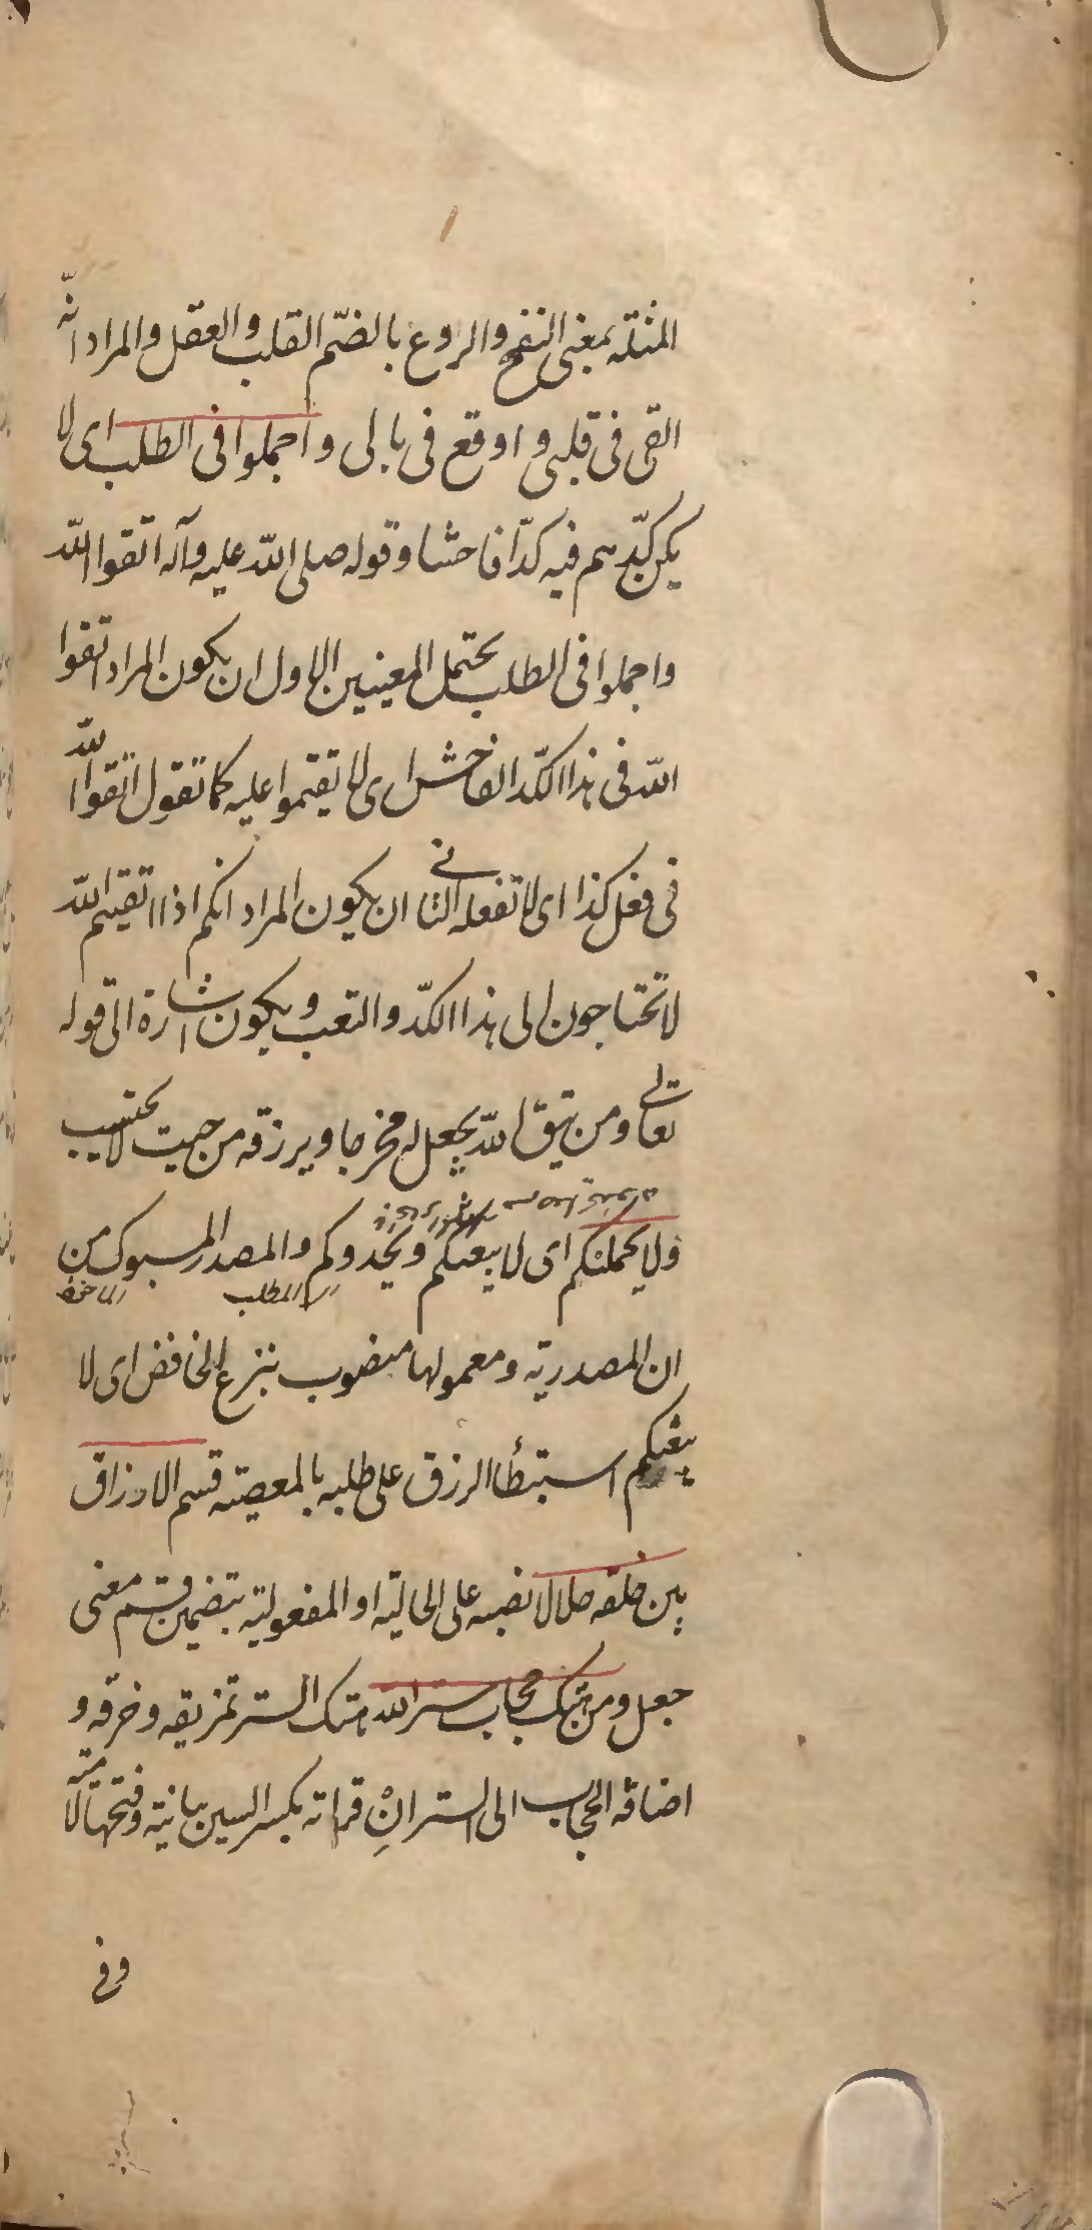 المثلثه بمعنى النفخ والروع بالضّم القلب والعقل والمراد انّه
القى فى قلبى و اوقع فى بالى و اجملوا فى الطلب اى لا
يكن كدّ هم فيه كدّا فاحشا و قوله صلى الله عليه وآله اتقوا الله
واجملوا فى الطلب يحتمل المعنيين الاول ان يكون المراد اتقوا
الله فى هذا الكدّ الفاحش اى لا تقيموا عليه كما تقول اتقوا الله
فى فعل كذا اى لا تفعله الثانى ان يكون المراد انكم اذا اتقيتم الله
لا تحتاجون الى هذا الكدّ والتعب ويكون اشارة الى قوله
تعالى ومن يتق الله يجعل له مخرجا ويرزقه من حيث لا يحتسب
ولا يحملنكم اى لا يبعثكم ويحدوكم والمصدر المسبوك من
ان المصدرية ومعمولها منصوب بنزع الخافض اى لا
يبعثكم استبطأ الرزق على طلبه بالمعصية قسم الارزاق
بين خلقه حلالا نصبه على الحالية او المفعولية بتضمين قسم معنى
جعل ومن هتك حجاب ستر الله هتك الستر تمزيقه وخرقه و
اضافه الحجاب الى الستر انْ قراته بكسر السين بيانية وفتحها لاميّة
وفى